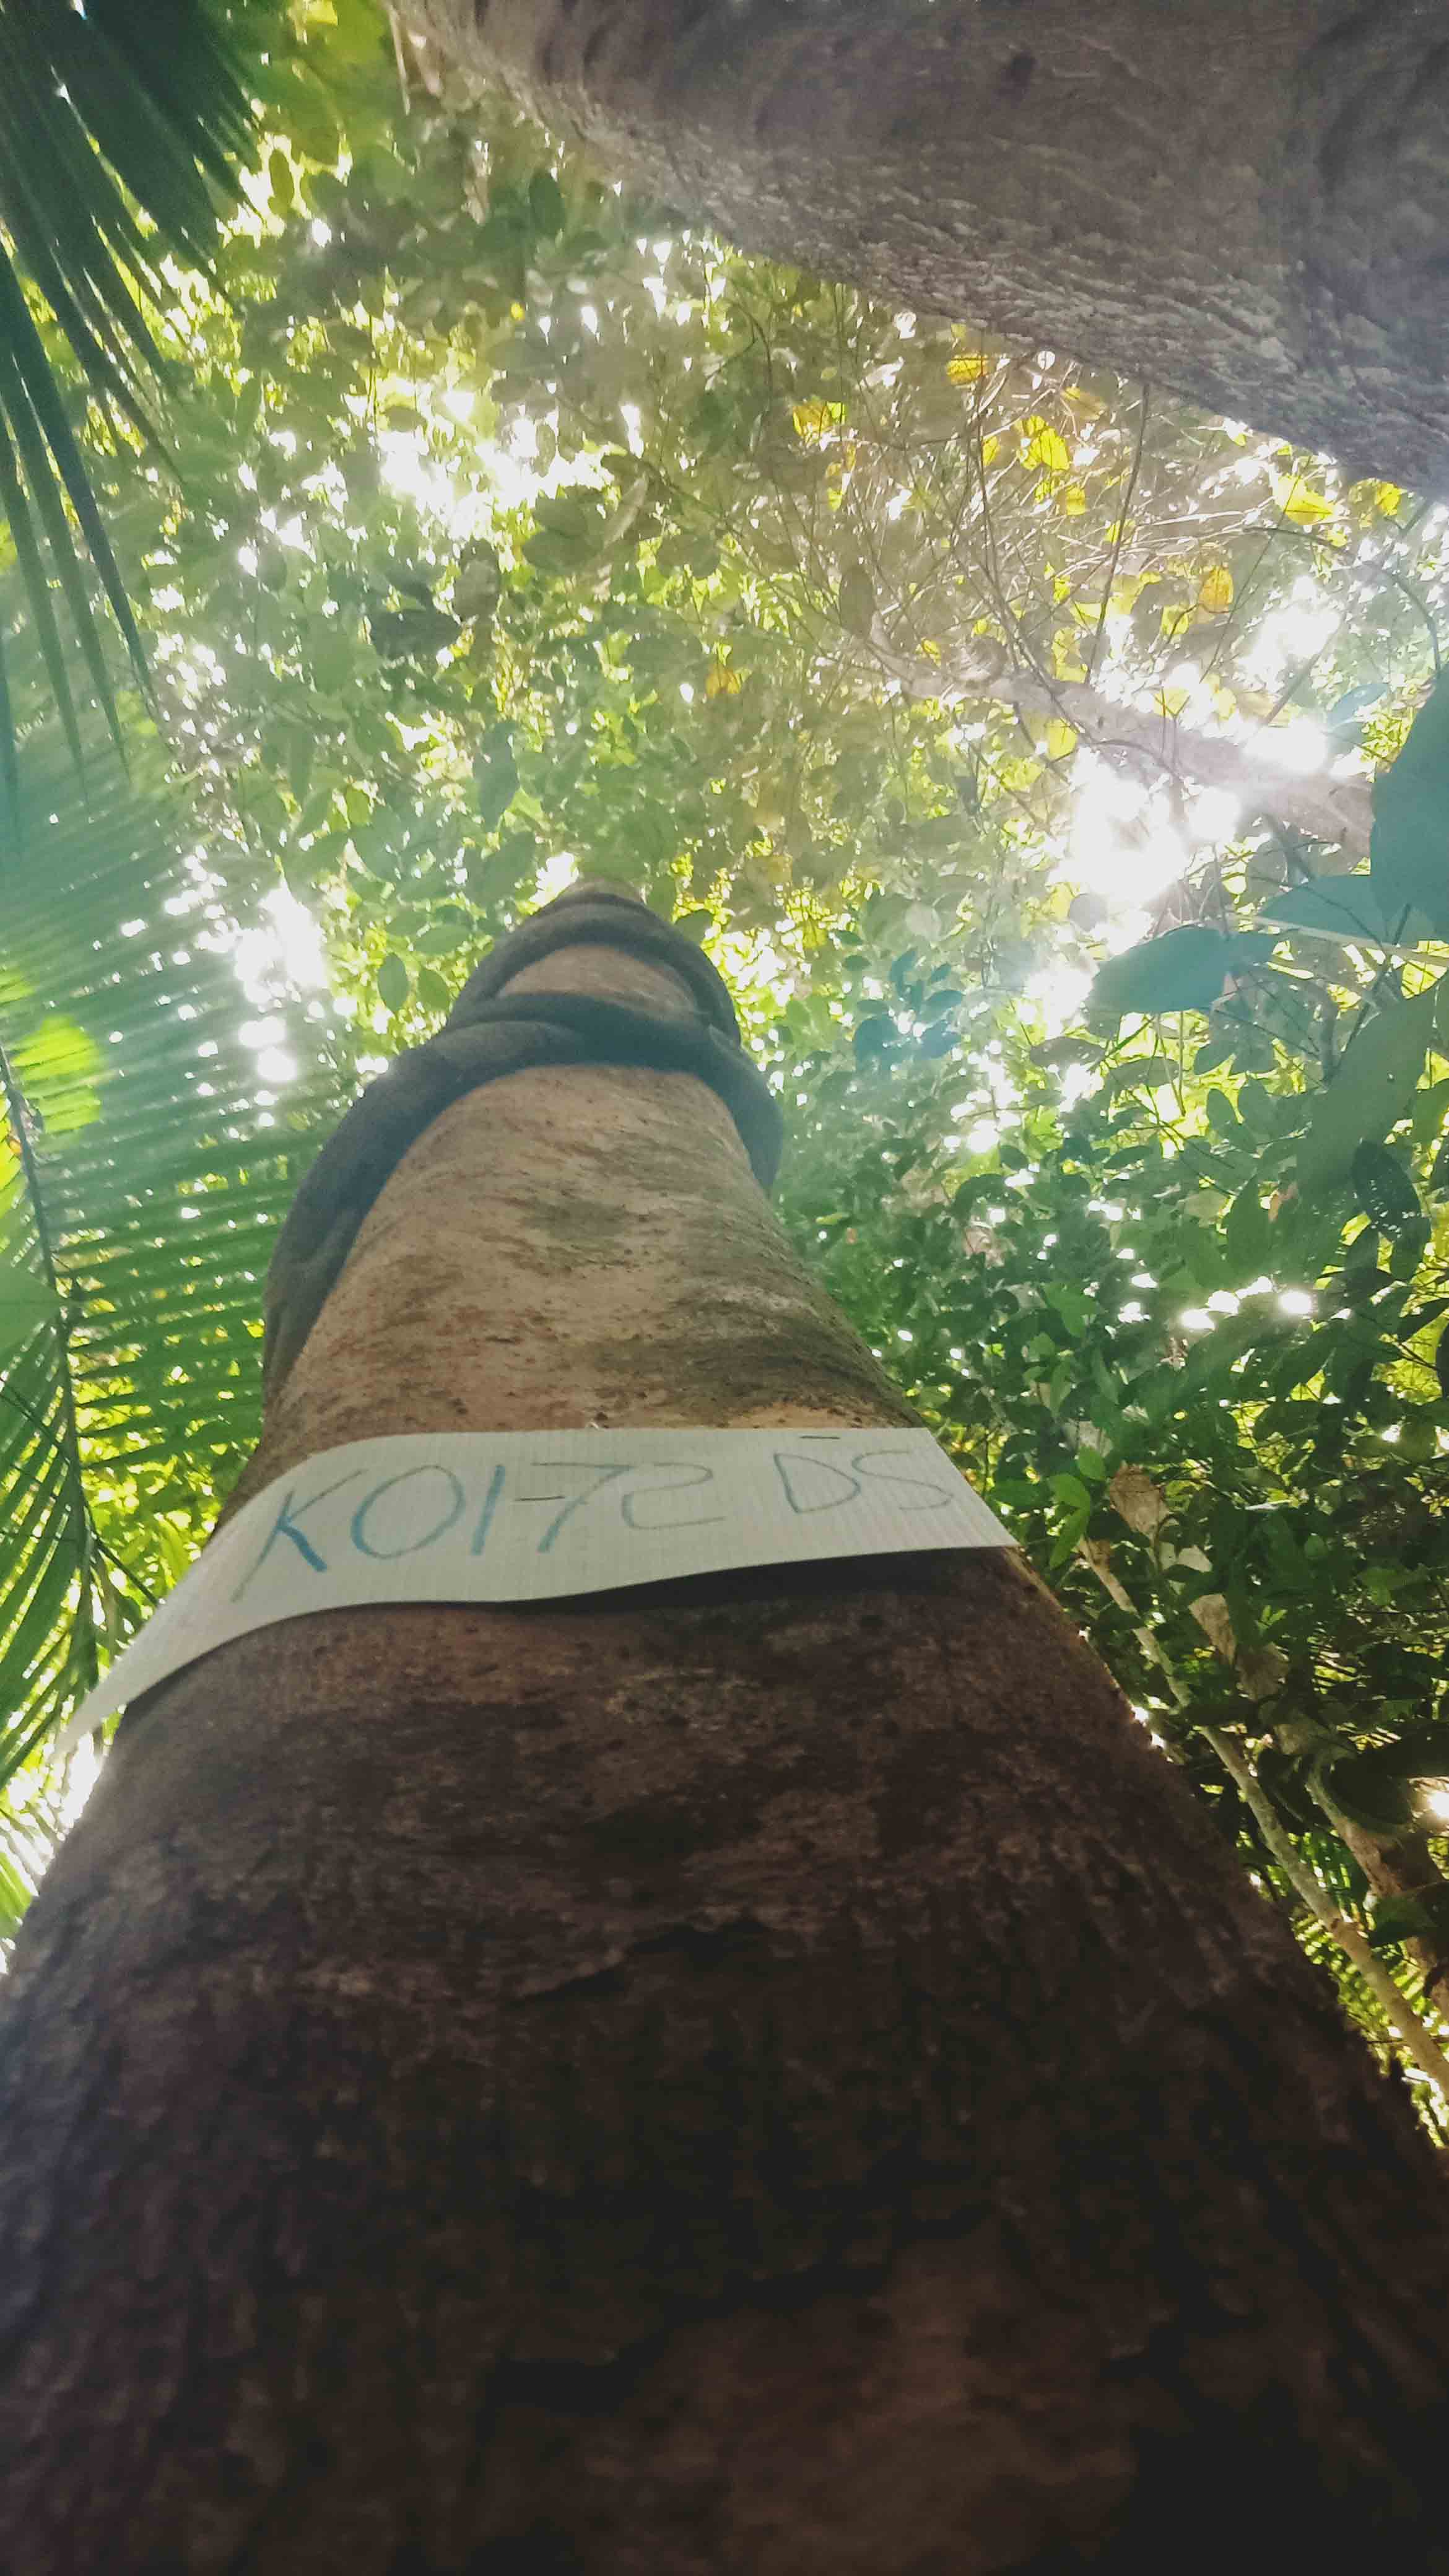 KO1-72 DS